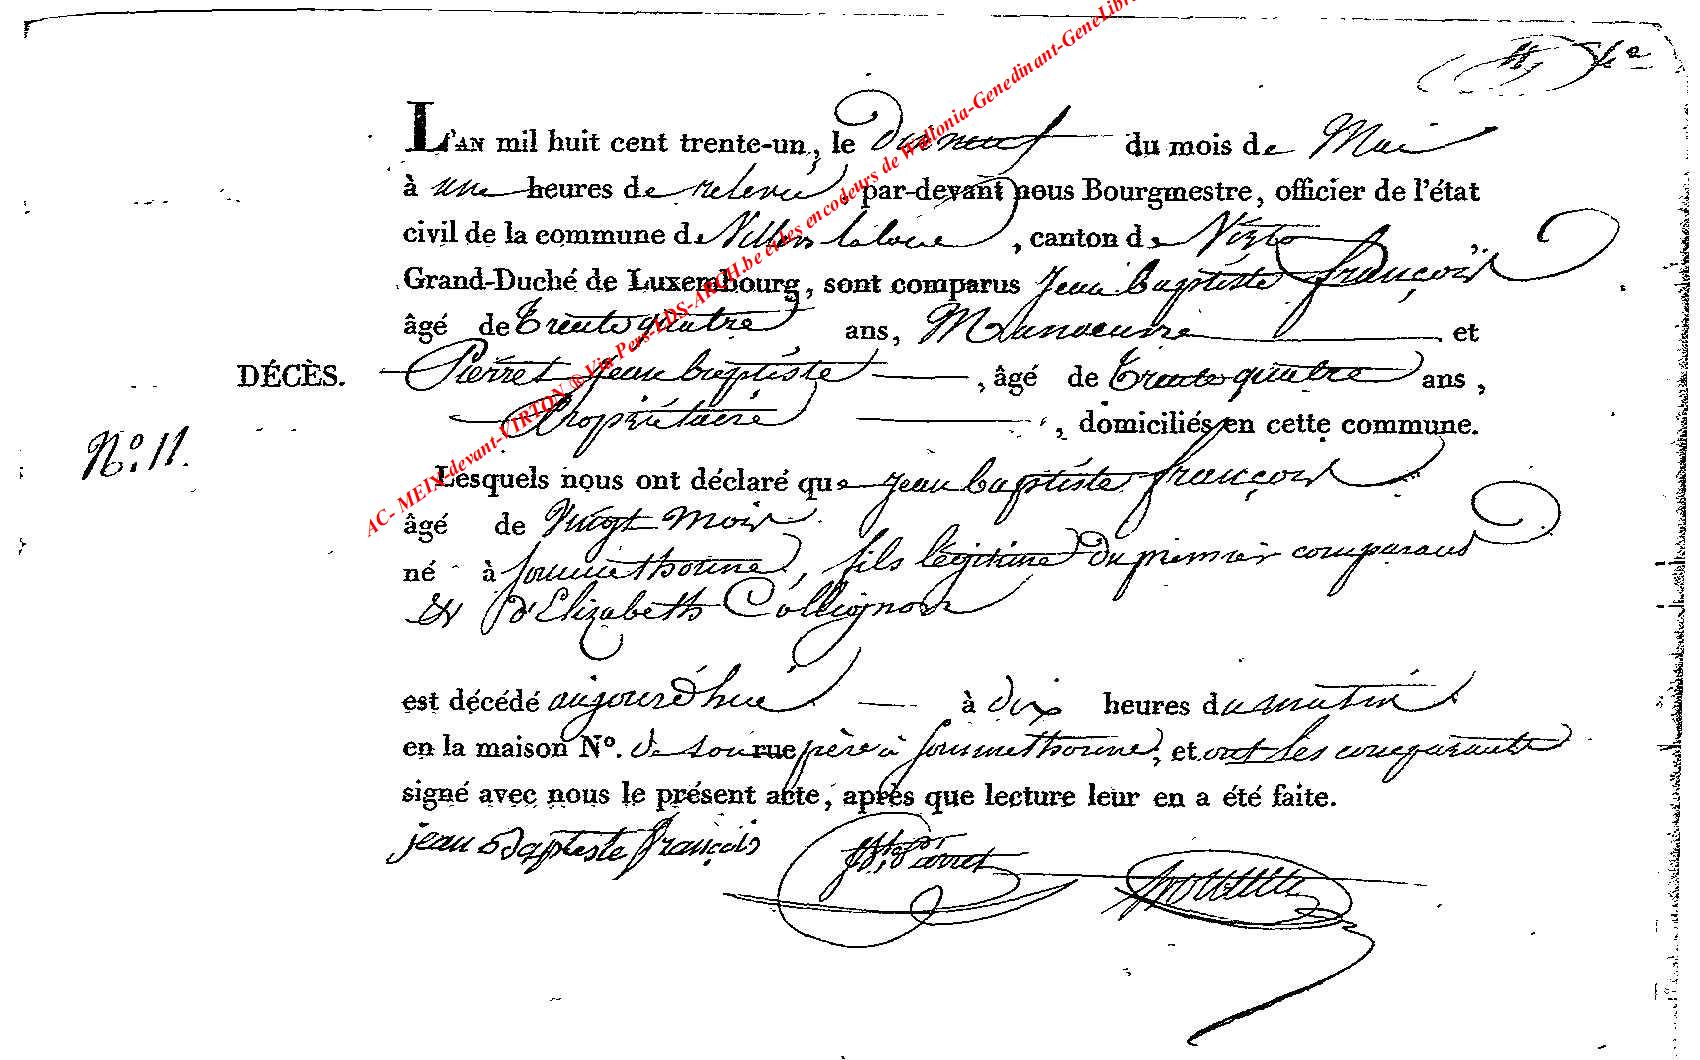 L'AN mil huit cent trente-un, le Dixneuf du mois de Mai
à une heures de relevée par-devant nous Bourgmestre, officier de l'état
civil de la commune de Villers laloue, canton de Virton
Grand-Duché de Luxembourg, sont comparus Jean baptiste françois
âgé de Trente quatre ans, Manoeuvre et
DÉCÈS. Pierret Jean baptiste, âgé de Trente quatre ans,
Propriétaire, domiciliés en cette commune.
N.º 11.
Lesquels nous ont déclaré que Jean baptiste françois
âgé de Vingt mois
né à Sommethonne, fils légitime du premier comparant
et d'Elizabeth Collignon
est décédé aujourd'hui à dix heures du matin
en la maison Nº. de son rue père à Sommethonne, et ont les comparants
signé avec nous le présent acte, après que lecture leur en a été faite.
jean Baptiste françois
AC- MEIX-devant-VIRTON ® Via Pers-LDS-ARCH.be et les encodeurs de Wallonia-Genedinant-GeneLibr